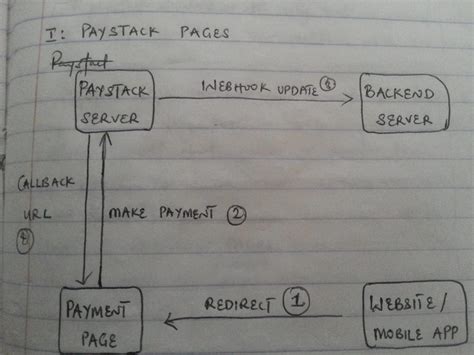 I: PAYSTACK PAGES
Paystack
PAYSTACK
SERVER
WEBHOOK UPDATE
BACKEND
SERVER
CALLBACK
URL
MAKE PAYMENT 2
PAYMENT
PAGE
REDIRECT 1
WEBSITE/
MOBILE APP